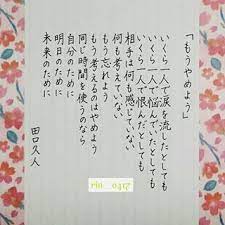 「もうやめよう」
いくら一人で涙を流したとしても
いくら一人で悩んでいたとしても
いくら一人で恨んだとしても
相手は何も感じていない
何も考えていない
もう忘れよう
もう考えるのはやめよう
同じ時間を使うのなら
自分のために
明日のために
未来のために
田口久人
rin__0417